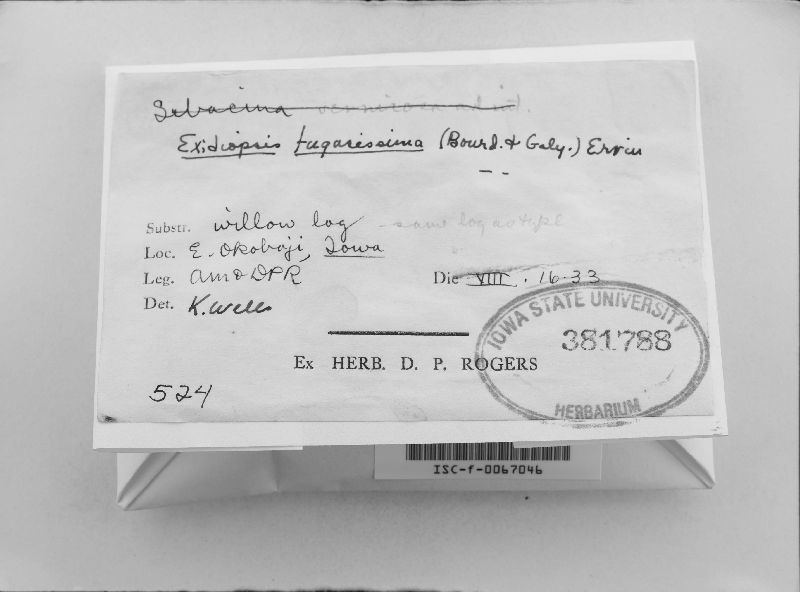 Sebacina
Exidiopsis fugacissima (Bourd. & Galz.) Ervin
Substr. willow log - same log as type
Loc. E. Okoboji, Iowa
Leg. AM & DPR Die VIII. 16.33
Det. K. Wells
Ex HERB. D. P. ROGERS
524
IOWA STATE UNIVERSITY
381788
HERBARIUM
ISC-f-0067046